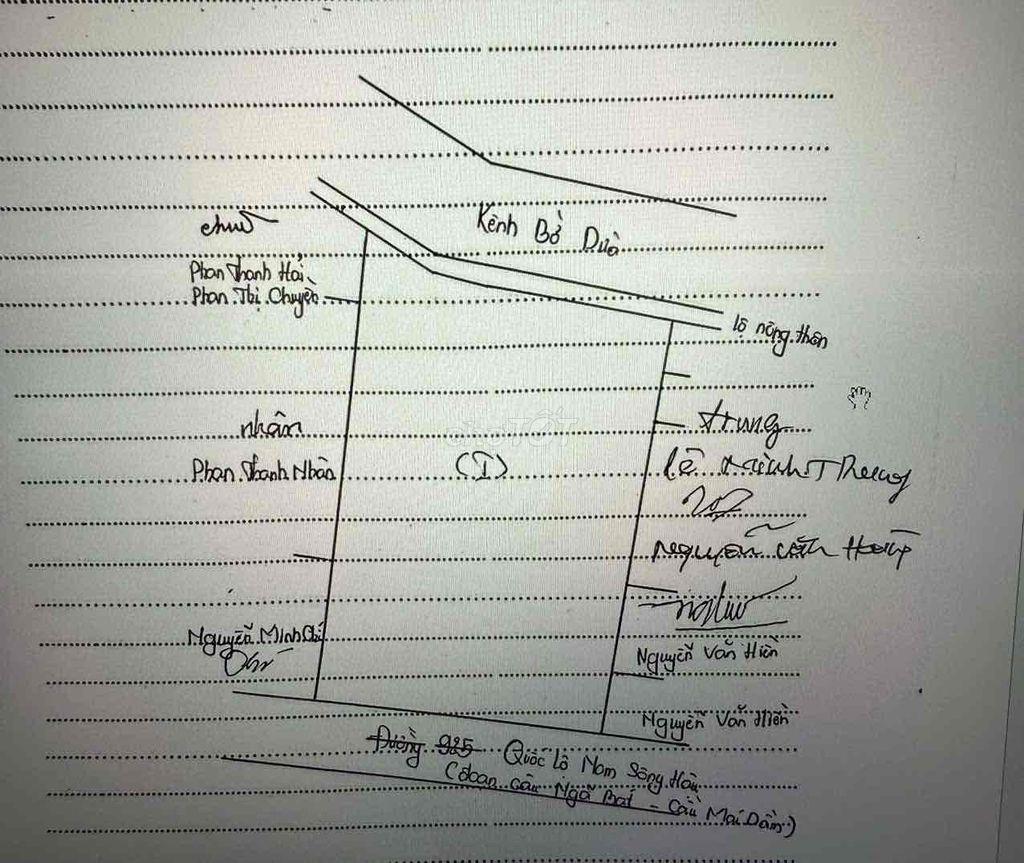 Kênh Bờ Dừa
chuẩn
Phan Thanh Hải
Phan Thị Chuyền
lộ nông thôn
nhân
Phan Thanh Nhàn
(I)
trung
Lê Minh Trung
Nguyễn Văn
Nguyễn Minh Chí
Chí
Nguyễn Văn Hiền
Nguyễn Văn Hiền
Đường 925 Quốc lộ Nam Sông Hậu
(đoạn cầu Ngã Bát - Cầu Mái Dầm)